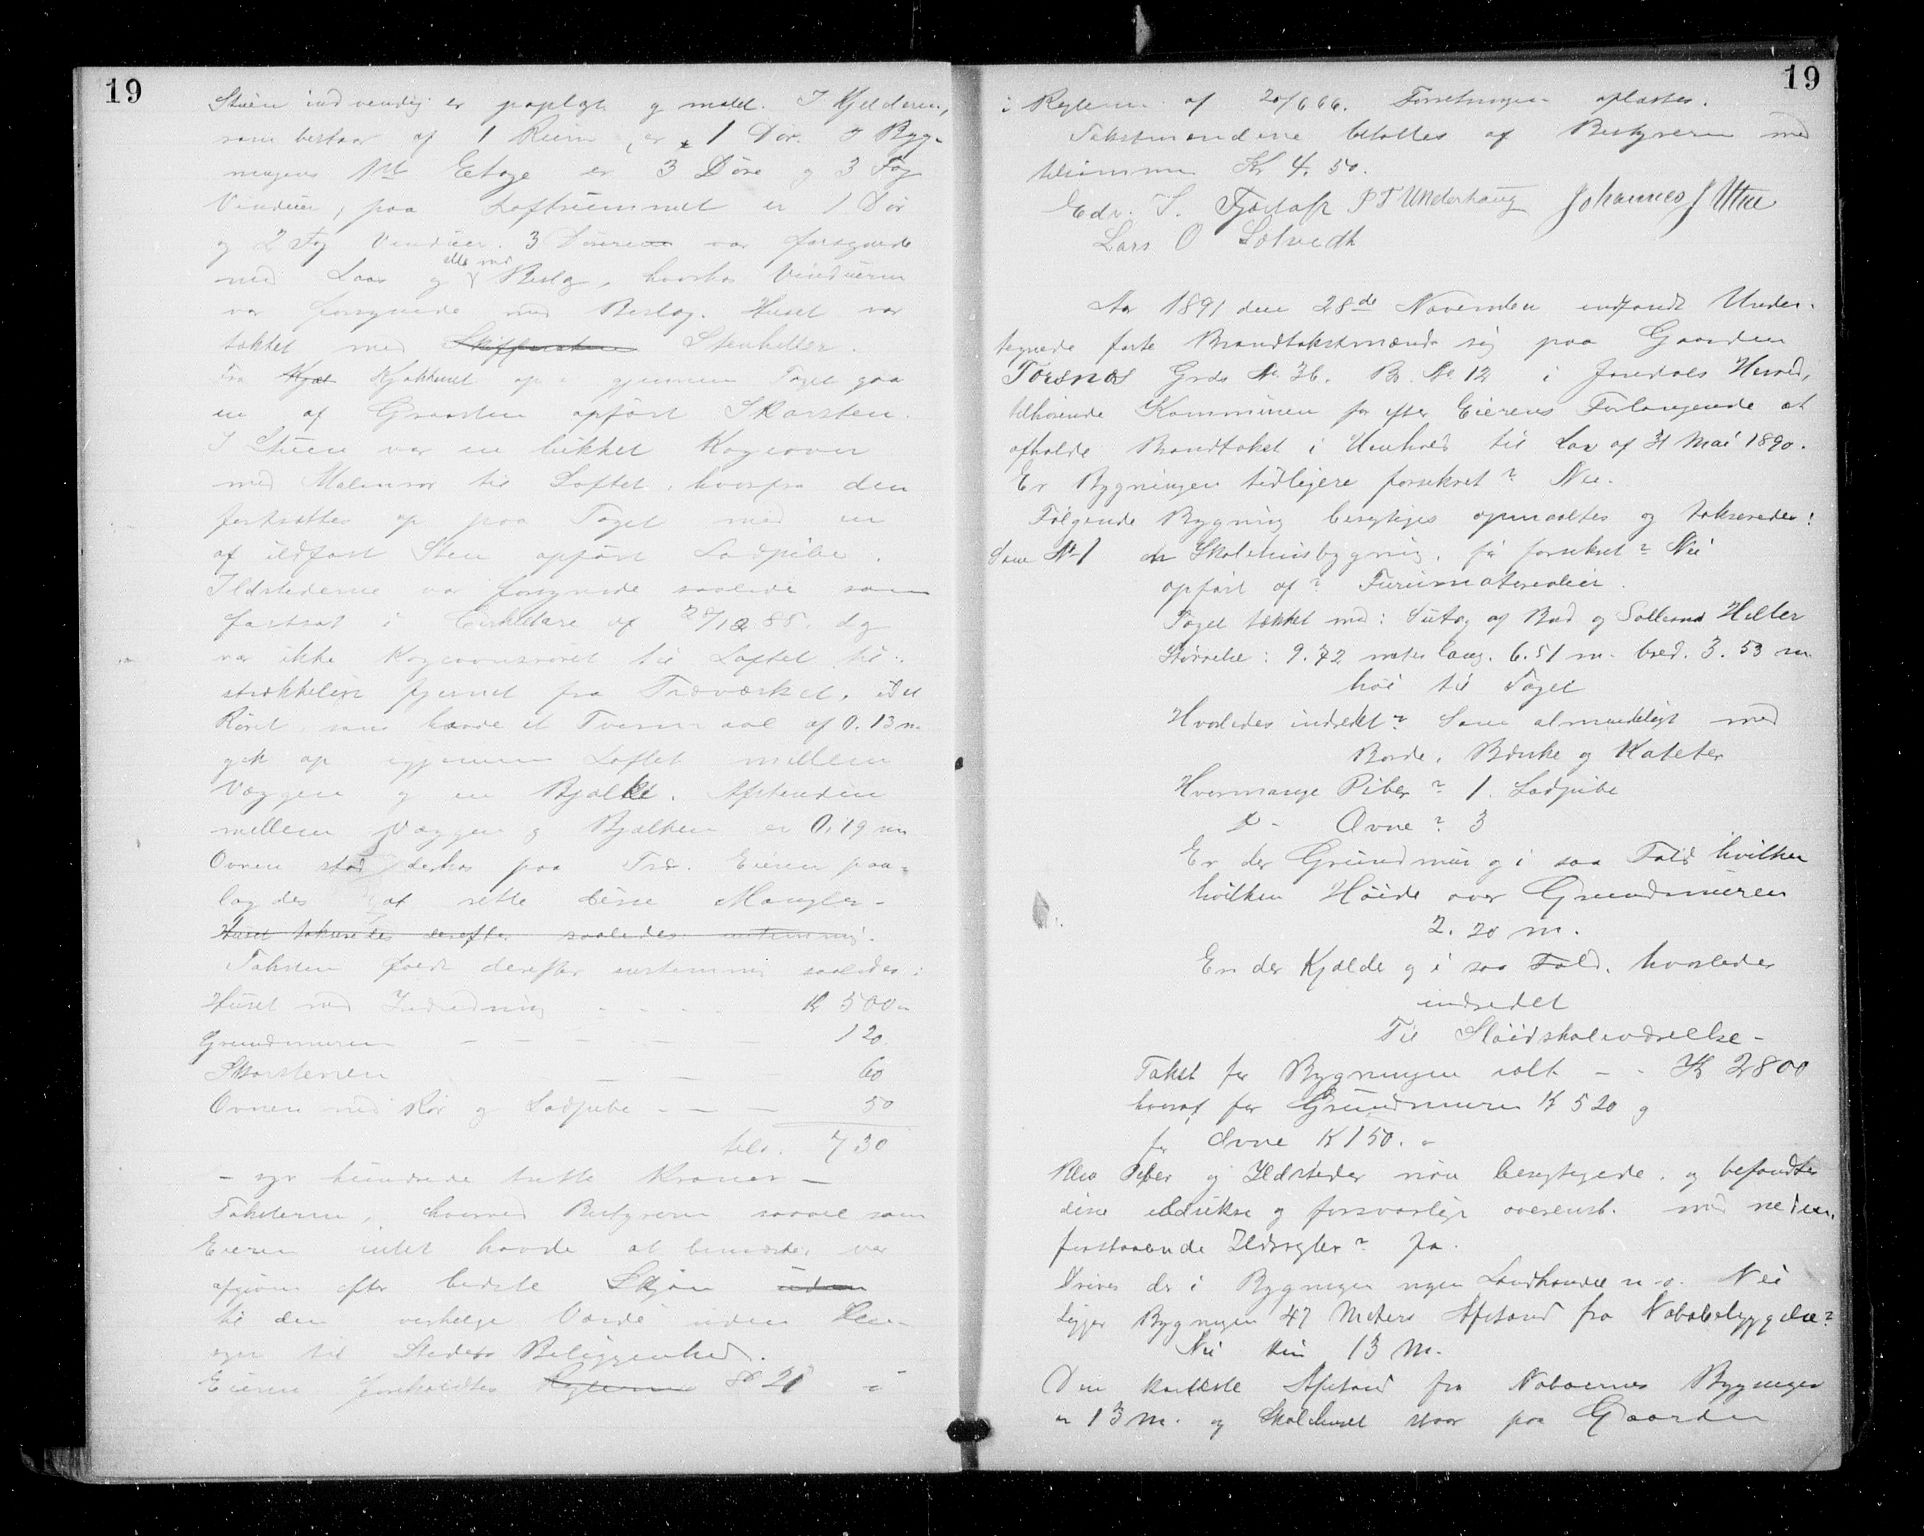 19
Stuen indvendig er paplagt og malet. I Kjelderen,
som bestaar af 1 Rum, er 1 Dør. I Byg-
ningens 1ste Etage er 3 Døre og 3 Fag
Vinduer, paa Loftrummet er 1 Dør
og 2 Fag Vinduer. 3 Dørene var forsynede
med Laas og Beslag, hvorhos Vinduerne
var forsynede med Beslag. Huset var
tækket med Stenheller.
Fra Kjøkkenet op igjennem Taget gaar
en af Graasten opført Skorsten
I Stuen var en liden Kogeovn
med Malmrør til Loftet, hvorfra den
fortsættes op paa Taget med en
af ildfast Sten opført Ladpibe.
Ildstederne var forsynede saaledes som
fastsat i Cirkulære af 28/12 85. dog
var ikke Kogeovnsrøret til Loftet til-
strækkelig fjernet fra Træværket, idet
Røret, som havde et Tvermaal af 0.13 m
gik op igjennem Loftet mellem
Væggen og en Bjælke. Afstanden
mellem Væggen og Bjælken er 0,19 m
Ovnen stod derhos paa Træ. Eieren paa-
lagdes at rette disse Mangler-
Huset takseredes derefter saaledes
Taksten blev derefter enstemmig saaledes:
Huset med Indredning - - - - Kr 500 "
Grundmuren - - - - - - 120.
Skorstenen - - - 60
Ovnen med Rør og Ladpibe - - - 50
tils. 730
- syv hundrede trette Kroner -
Taksterne, hvorved Bestyreren saavel som
Eieren intet havde at bemærke, var
afgivne efter bedste Skjøn uden
til den virkelige Værdi uden Hen-
syn til Stedets Beliggenhed.
Eieren foreholdtes Reglerne § 21 i
19
i Reglerne af 20/6 66. Forretningen oplæstes.
Takstmændene betaltes af Bestyreren med
tilsammen Kr 4.50.
Edv. S. P T Underhaug Johannes J Utne
Lars O Solvedt
Aar 1891 den 28de November indfandt Under-
tegnede faste Brandtakstmænd sig paa Gaarden
Torsnæs Grds No 36. Br. No 12 i Jondals Herred,
tilhørende Kommunen for efter Eierens Forlangende at
afholde Brandtakst i Henhold til Lov af 31 Mai 1890.
Er Bygningen tidligere forsikret? Nei.
Følgende Bygning besigtiges opmaaltes og takseredes:
Som No 1 en Skolehusbygning, før forsikret? Nei
opført af? Furumaterialier.
Taget tækket med: Sutag af Bord og Heller
Størrelse: 9.72 meter lang. 6.51 m. bred. 3.53 m
høi til Taget
Hvorledes indredet? Som almindeligt med
Borde, Bænke og Kateter
Hvormange Piber? 1. Ladpibe
D- Ovne? 3
Er der Grundmur og i saa Fald hvilken
hvilken Høide over Grundmuren
2.20 m.
Er der Kjælder og i saa Fald. hvorledes
indredet
Til Sløidskoleværelse -
Takst for Bygningen ialt - - Kr 2800
hvoraf for Grundmuren K 520 og
for Ovne K 150. -
Blev Piber og Ildsteder nøie besigtigede, og befandtes
disse ildsikre og forsvarlige overenst. med neden-
forstaaende Ildsregler? Ja.
Drives der i Bygningen nogen Landhandel o. s. Nei
Ligger Bygningen 47 Meters Afstand fra Nabobebyggelse?
Nei kun 13 m.
Den korteste Afstand fra Naboernes Bygninger
er 13 m. og Skolehuset staar paa Gaarden